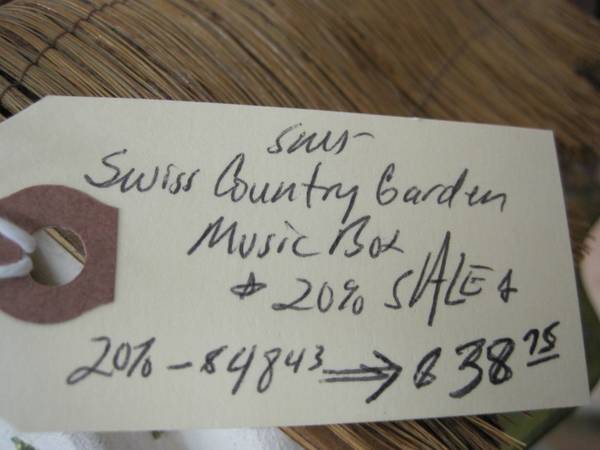 Swiss Country Garden
Music Box
* 20% SALE *
20% - $48 43 → $38 75